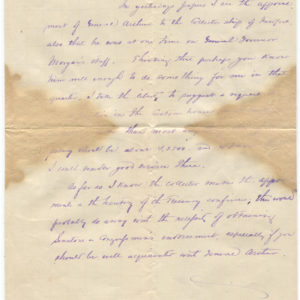 In yesterdays papers I see the appoint
ment of General Arthur to the Collector ship of
also that he was at one time on General Governor
Morgans staff. Thinking that perhaps you know
him well enough to do something for me in that
quarter, I take the liberty to suggest a request
in the Custom house
that most
should be about
I could render good service there.
As far as I know the collector makes the appt
the Secretary of the Treasury confirms, this would
probably do away with the necessity of obtaining
endorsement especially if you
should be well acquainted with General Arthur.